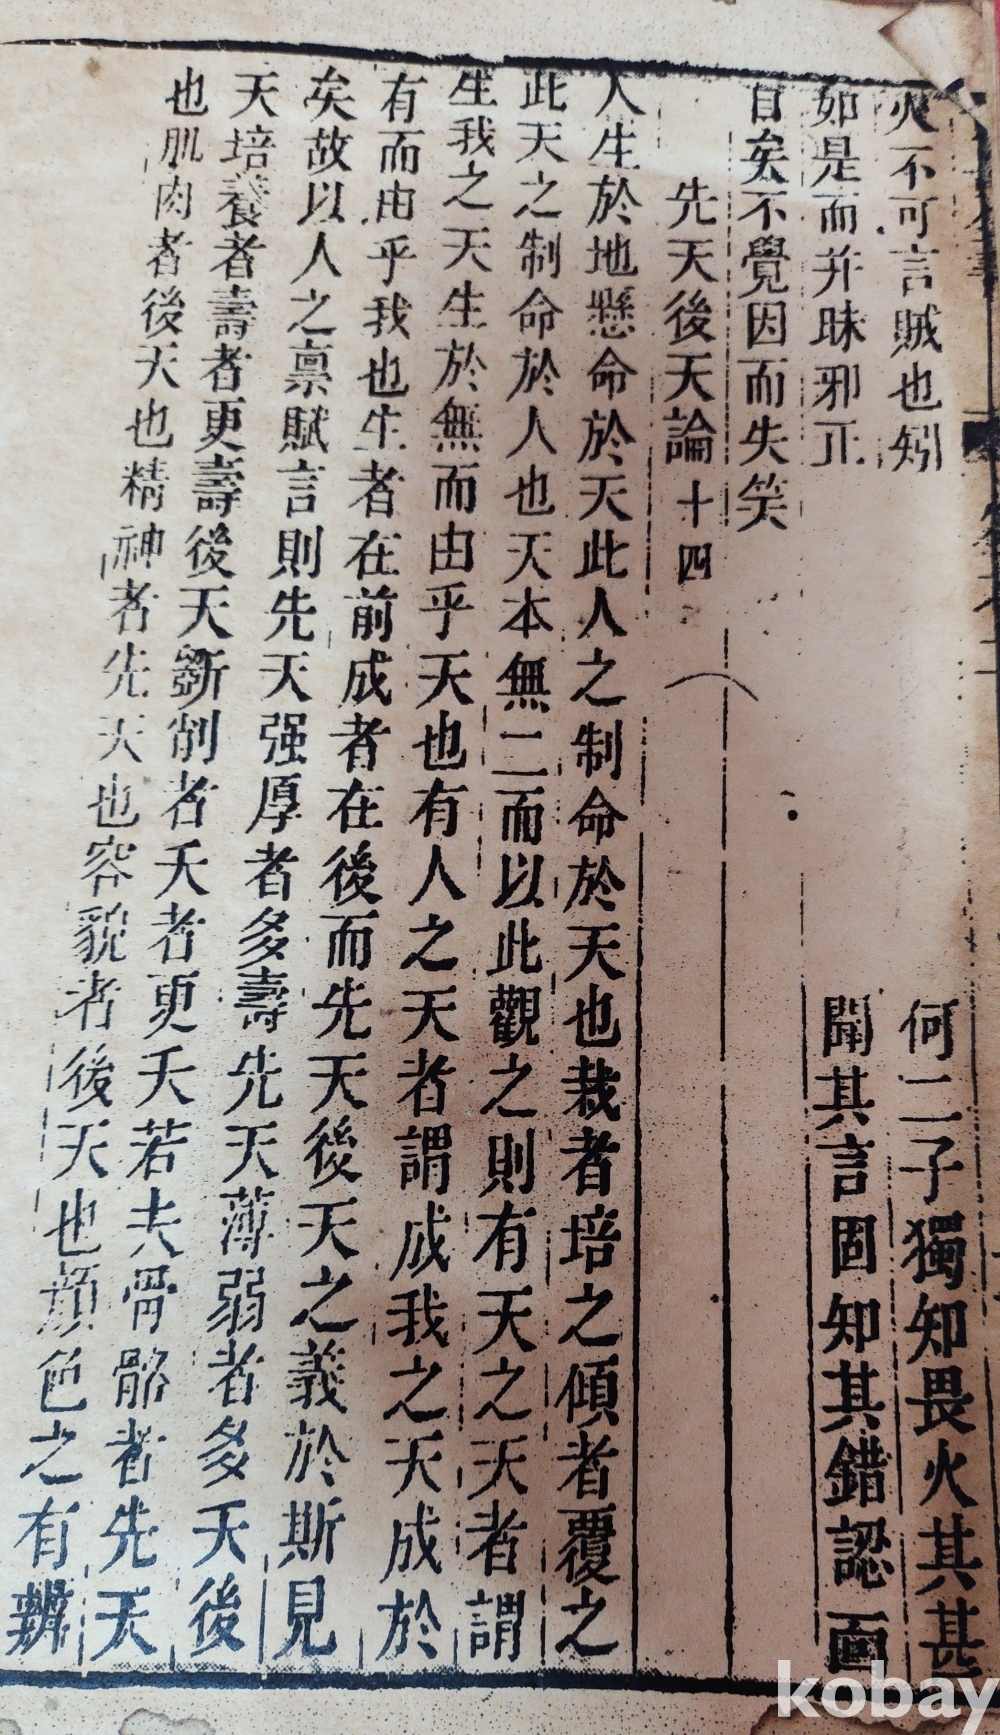 火不可言賊也矧 何二子獨知畏火其甚
如是而并昧邪正 聞其言固知其錯認面
目矣不覺因而失笑
先天後天論 十四
人生於地懸命於天此人之制命於天也栽者培之傾者覆之
此天之制命於人也天本無二而以此觀之則有天之天者謂
生我之天生於無而由乎天也有人之天者謂成我之天成於
有而由乎我也生者在前成者在後而先天後天之義於斯見
矣故以人之禀賦言則先天强厚者多壽先天薄弱者多夭後
天培養者壽者更壽後天斵削者夭者更夭若夫骨骼者先天
也肌肉者後天也精神者先天也容貌者後天也顔色之有辨
kobay